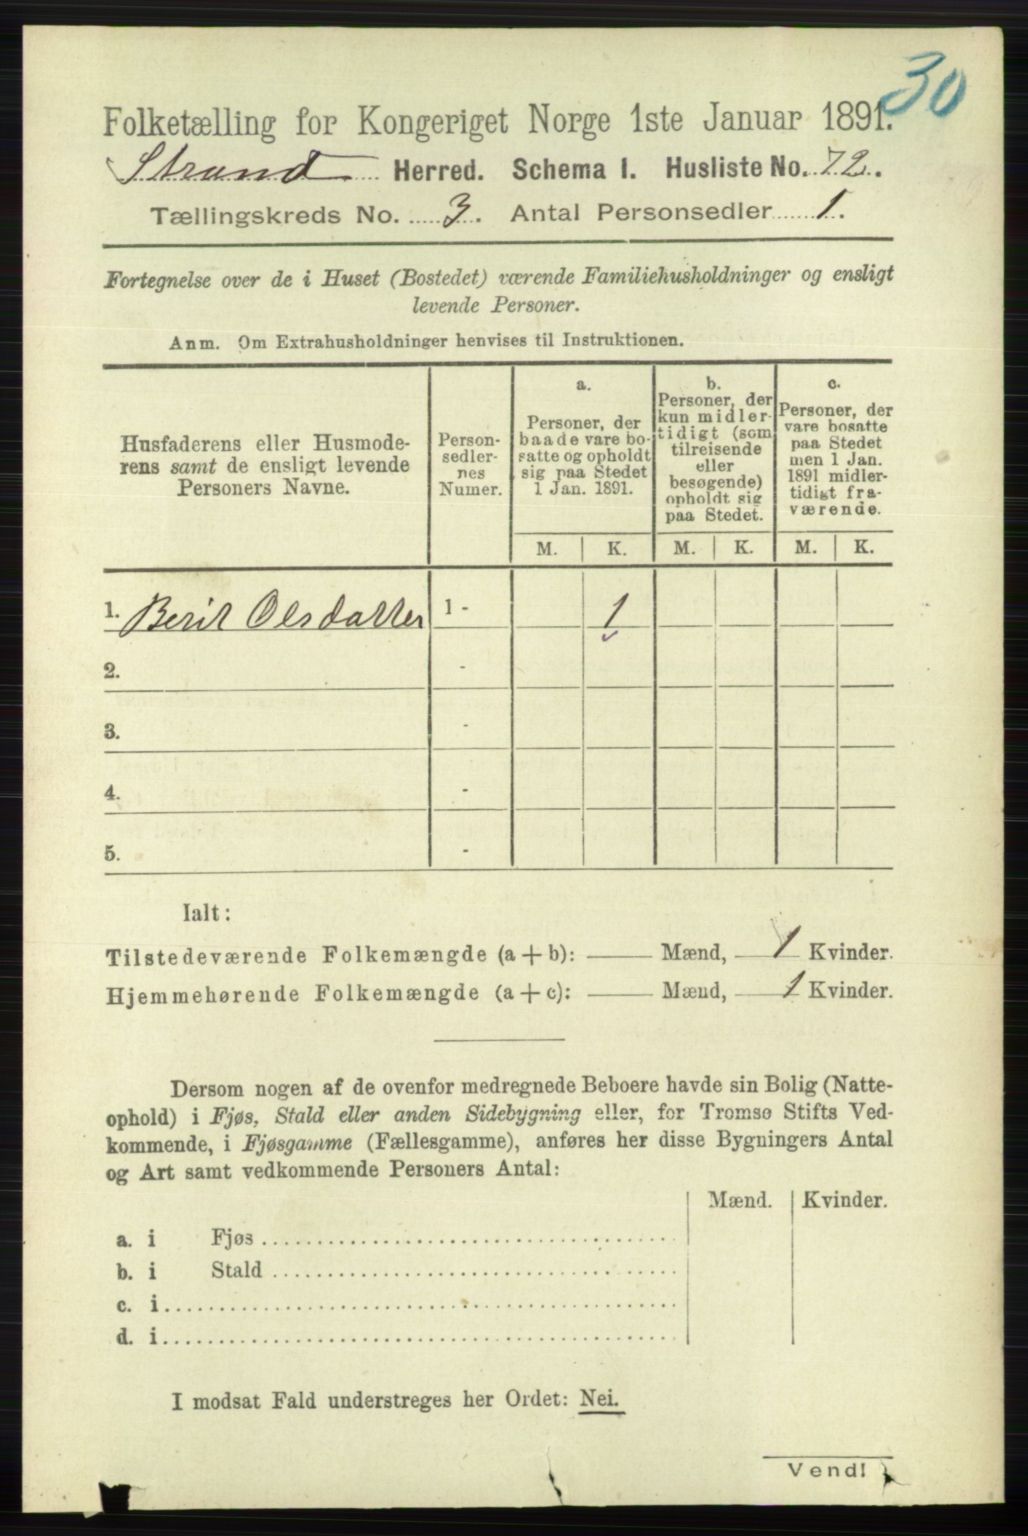 30
Folketælling for Kongeriget Norge 1ste Januar 1891.
Strand Herred. Schema I. Husliste No. 72.
Tællingskreds No. 3. Antal Personsedler 1.
Fortegnelse over de i Huset (Bostedet) værende Familiehusholdninger og ensligt
levende Personer.
Anm. Om Extrahusholdninger henvises til Instruktionen.
Husfaderens eller Husmode-
rens samt de ensligt levende
Personers Navne.
Person-
sedler-
nes
Numer.
a.
Personer, der
baade vare bo-
satte og opholdt
sig paa Stedet
1 Jan. 1891.
b.
Personer, der
kun midler-
tidigt (som
tilreisende
eller
besøgende)
opholdt sig
paa Stedet.
c.
Personer, der
vare bosatte
paa Stedet
men 1 Jan.
1891 midler-
tidigt fra-
værende.
M. K. M. K. M. K.
1. Berit Olsdatter 1 - 1
2. -
3. -
4. -
5. -
Ialt:
Tilstedeværende Folkemængde (a + b): Mænd, 1 Kvinder.
Hjemmehørende Folkemængde (a + c): Mænd, 1 Kvinder.
Dersom nogen af de ovenfor medregnede Beboere havde sin Bolig (Natte-
ophold) i Fjøs, Stald eller anden Sidebygning eller, for Tromsø Stifts Ved-
kommende, i Fjøsgamme (Fællesgamme), anføres her disse Bygningers Antal
og Art samt vedkommende Personers Antal:
Mænd. Kvinder.
a. i Fjøs
b. i Stald
c. i
d. i
I modsat Fald understreges her Ordet: Nei.
Vend!